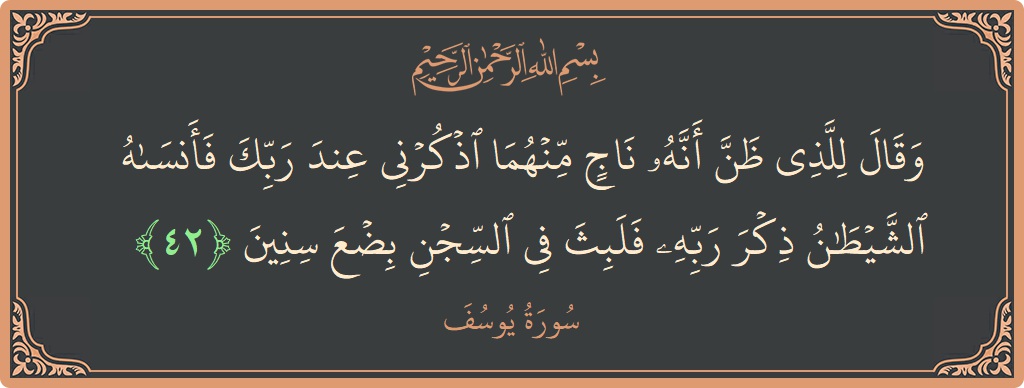 بِسْمِ اللَّهِ الرَّحْمَٰنِ الرَّحِيمِ
وَقَالَ لِلَّذِى ظَنَّ أَنَّهُۥ نَاجٍ مِّنْهُمَا ٱذْكُرْنِى عِندَ رَبِّكَ فَأَنسَىٰهُ
ٱلشَّيْطَٰنُ ذِكْرَ رَبِّهِۦ فَلَبِثَ فِى ٱلسِّجْنِ بِضْعَ سِنِينَ ﴿٤٢﴾
سُورَةُ يُوسُفَ